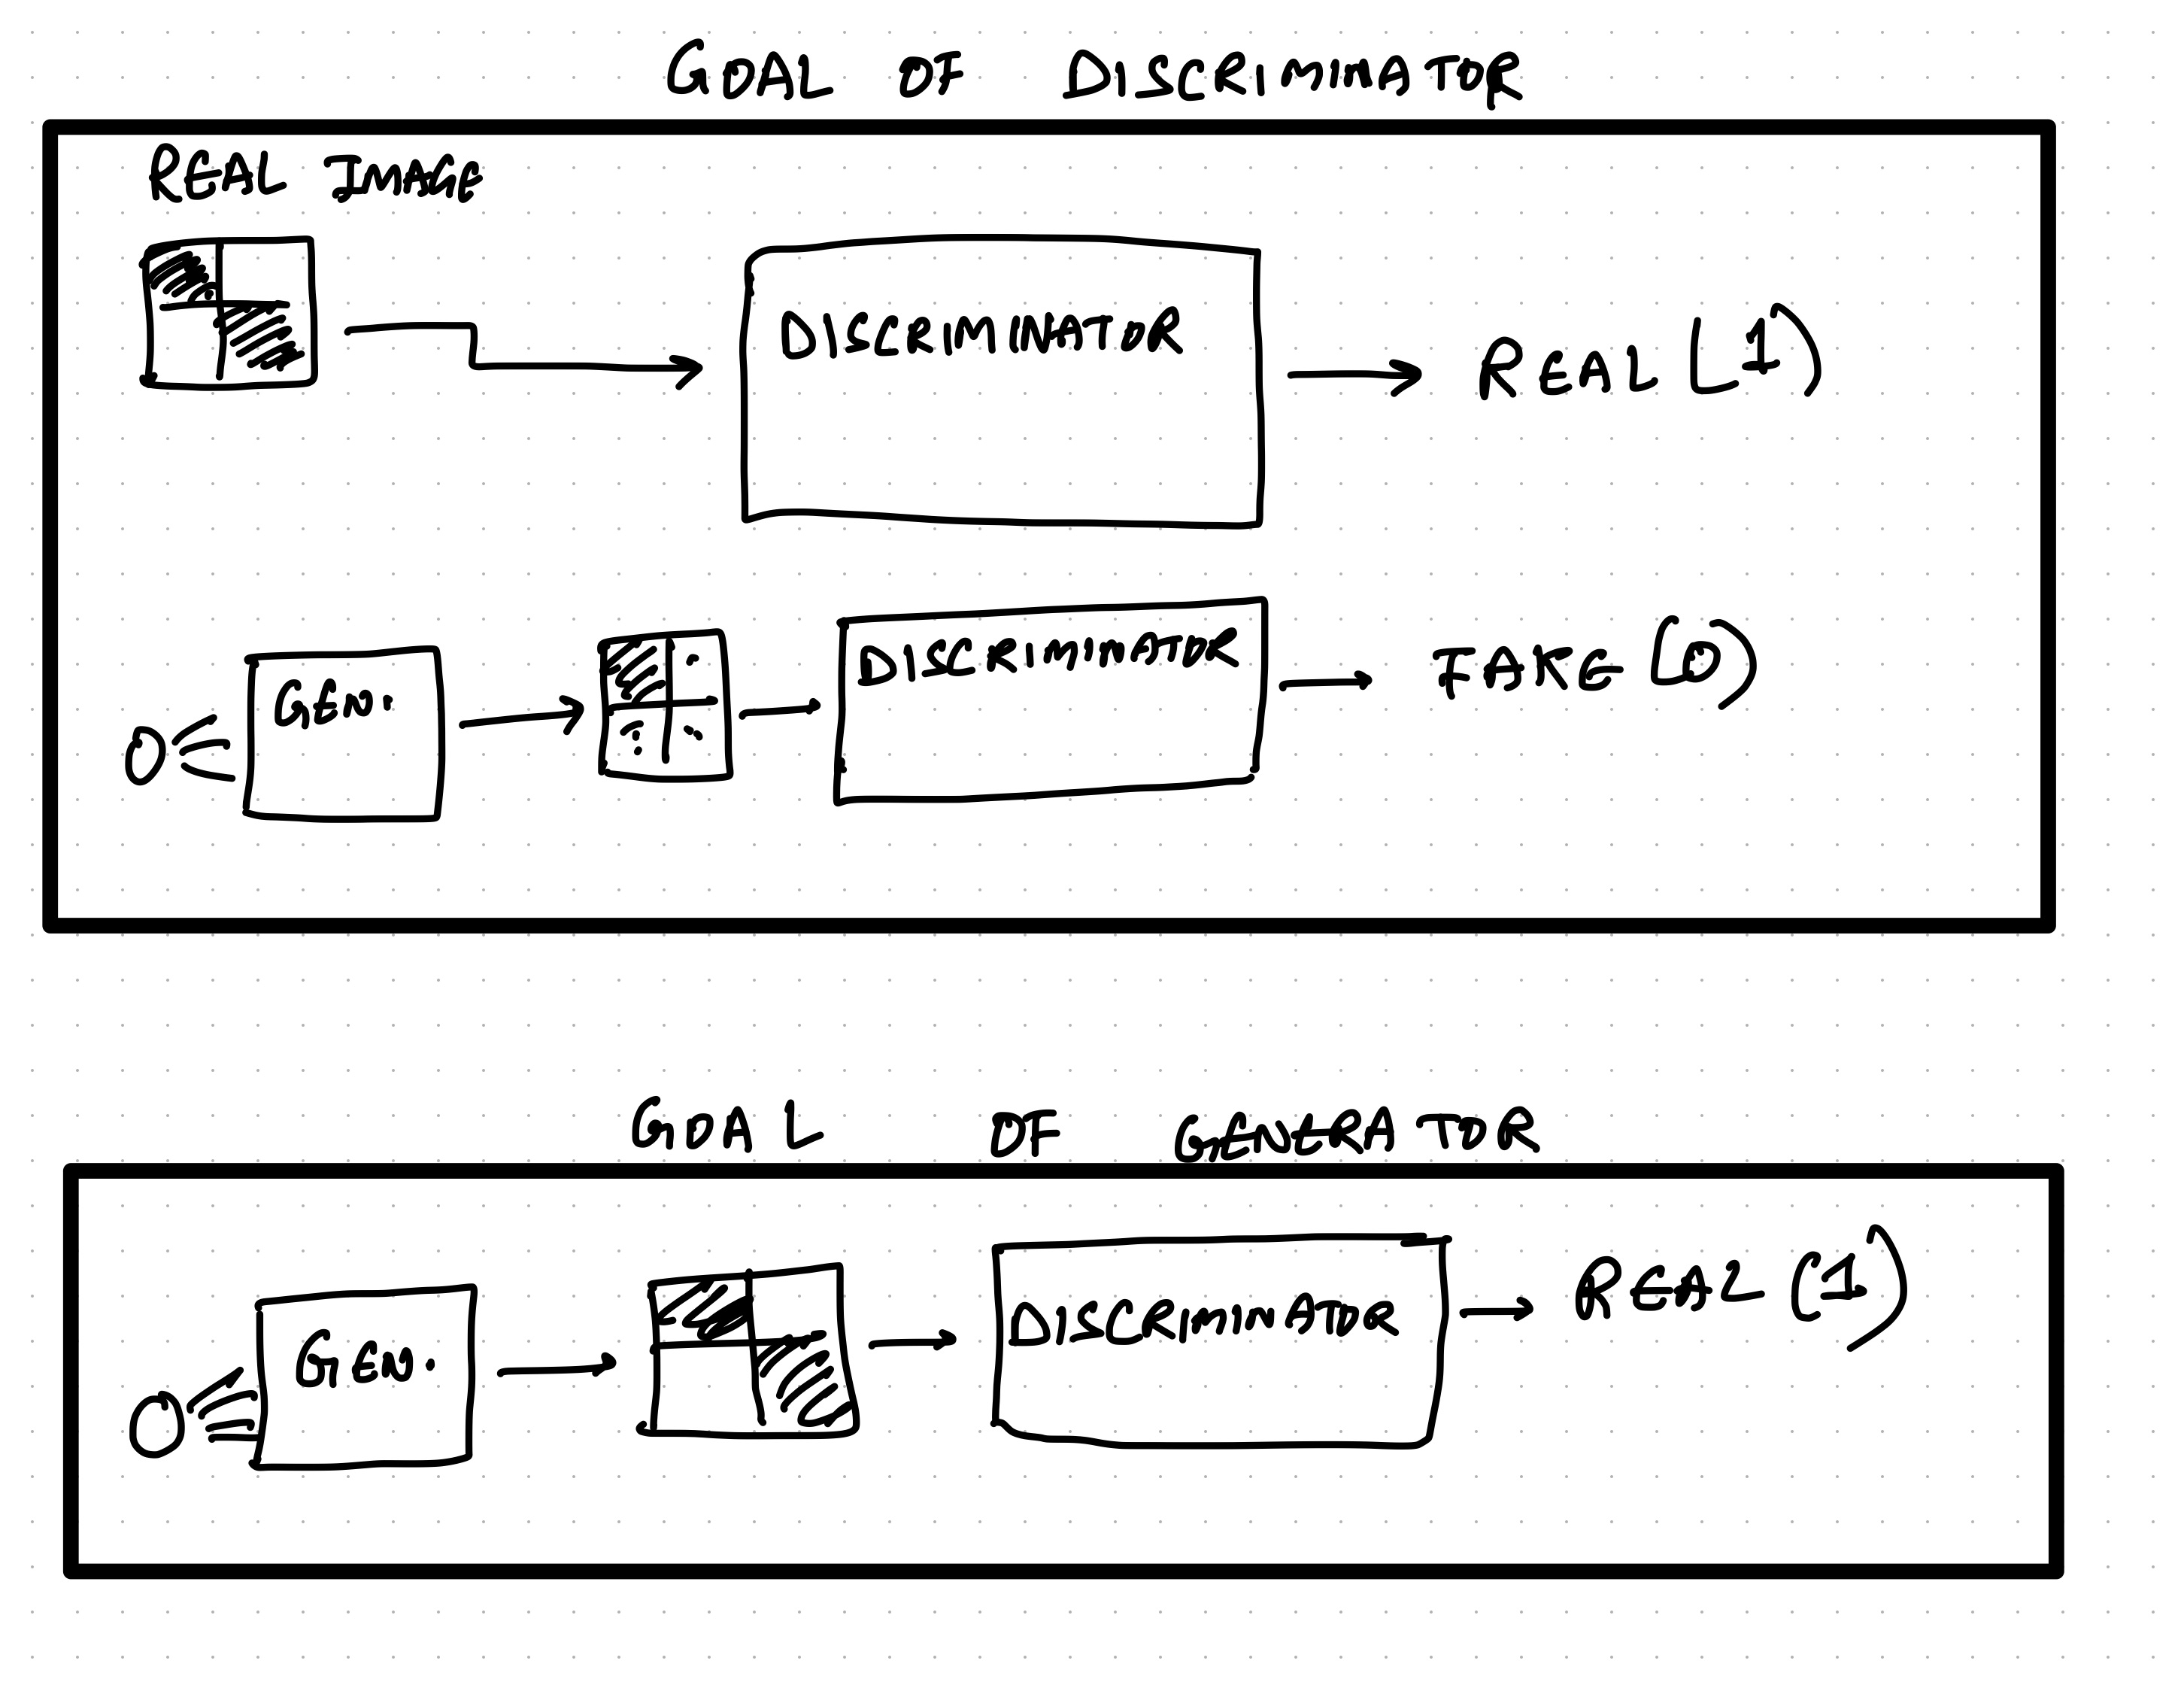 GOAL OF DISCRIMINATOR
REAL IMAGE
DISCRIMINATOR
REAL (1)
GEN.
DISCRIMINATOR
FAKE (0)
GOAL OF GENERATOR
GEN.
DISCRIMINATOR
REAL (1)